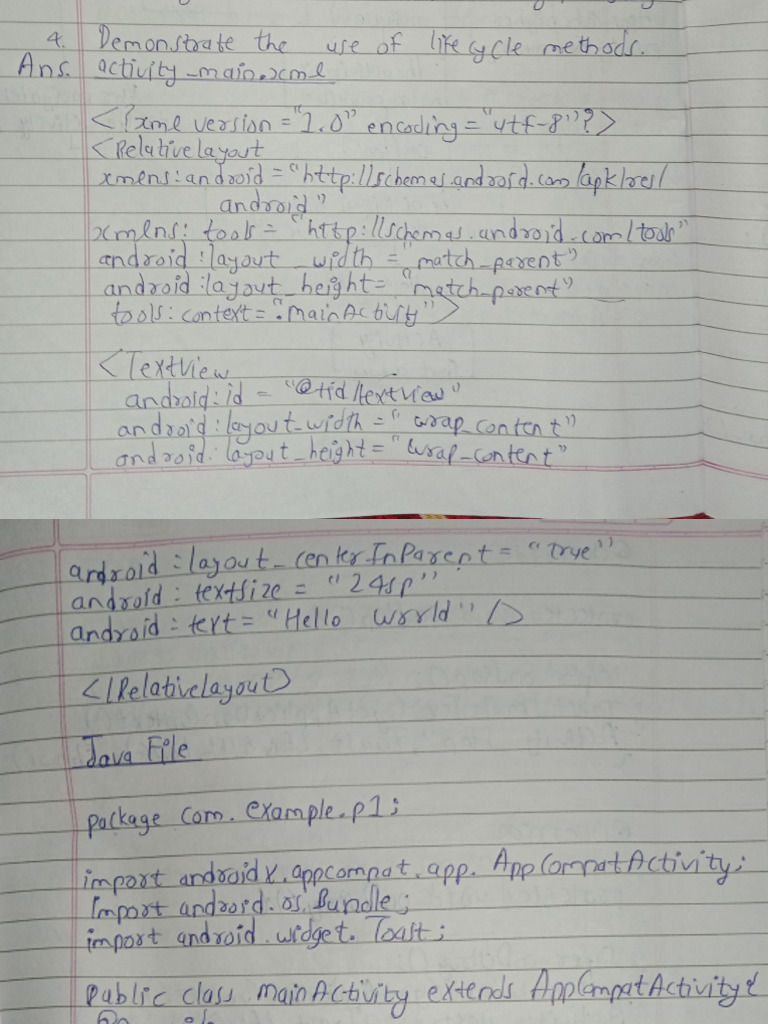 4. Demonstrate the use of life cycle methods.
Ans. activity_main.xml
<?xml version = "1.0" encoding = "utf-8"?>
<Relativelayout
xmlns:android = "http://schemas.android.com/apk/res/
android"
xmlns: tools = "http://schemas.android.com/tools"
android:layout_width = "match_parent"
android:layout_height= "match_parent"
tools:context= ".mainActivity">
<TextView
android:id = "@+id/textview"
android:layout_width = "wrap_content"
android:layout_height = "wrap_content"
android:layout_centerInParent = "true"
android:textsize = "24sp"
android:text= "Hello World" />
</Relativelayout>
Java File
package com.example.p1;
import androidx.appcompat.app.AppCompatActivity;
Import android.os.Bundle;
import android.widget.Toast;
Public class mainActivity extends AppCompatActivity{